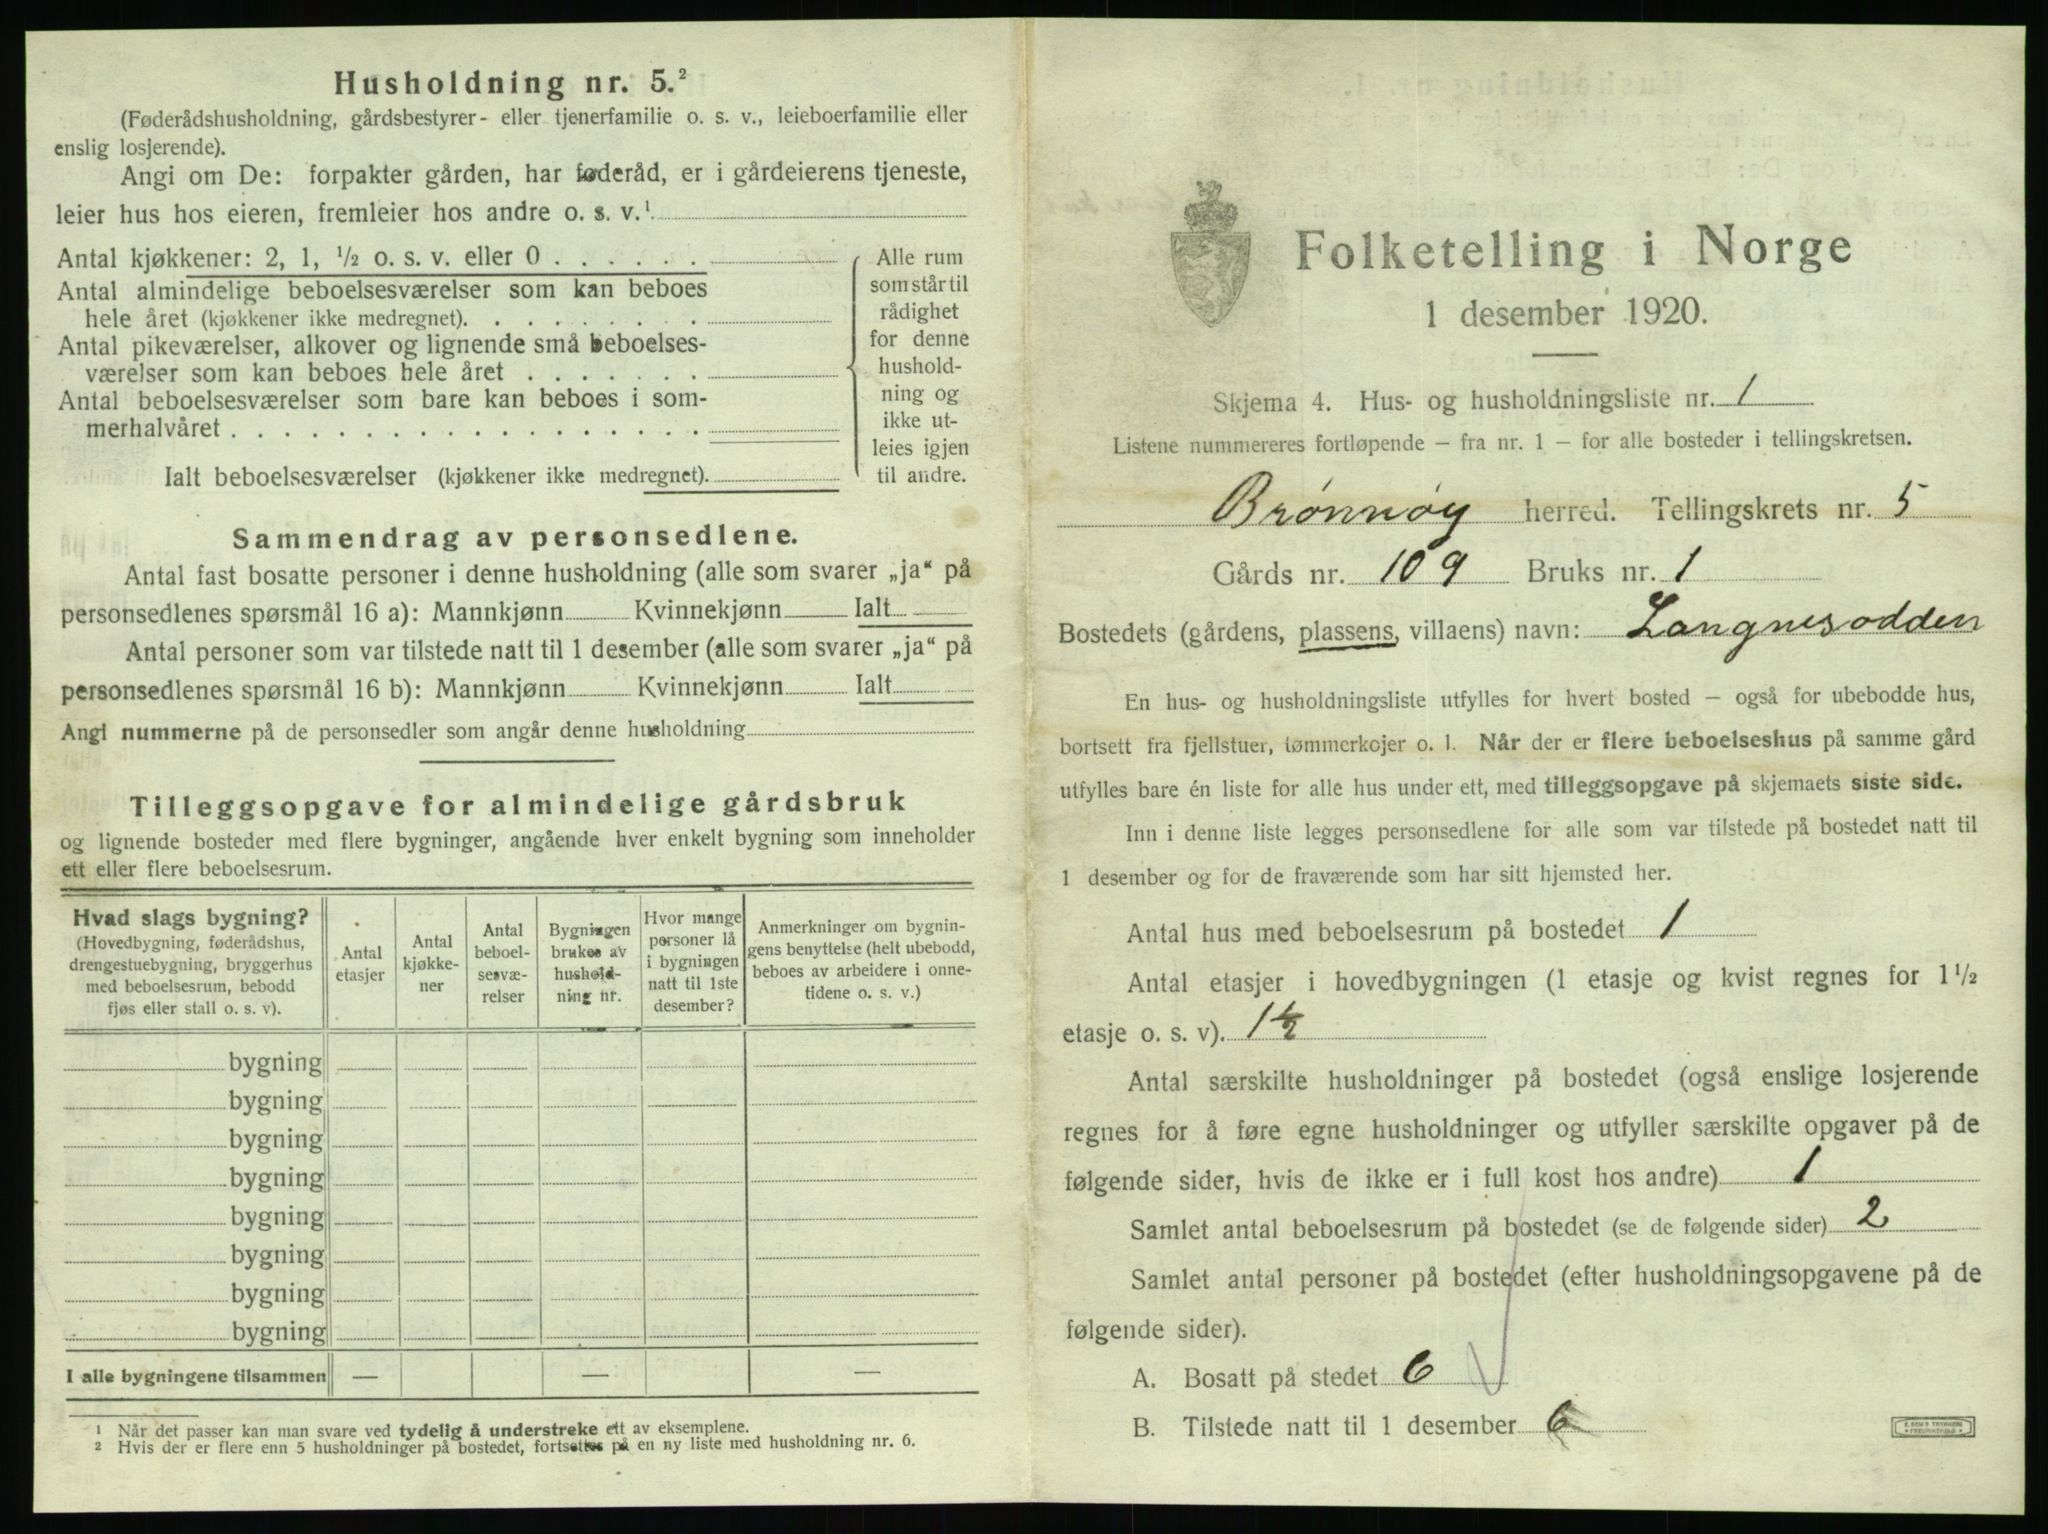 Husholdning nr. 5.²
(Føderådshusholdning, gårdsbestyrer- eller tjenerfamilie o. s. v., leieboerfamilie eller
enslig losjerende).
Angi om De: forpakter gården, har føderåd, er i gårdeierens tjeneste,
leier hus hos eieren, fremleier hos andre o. s. v.¹
Antal kjøkkener: 2, 1, ½ o. s. v. eller 0 . . . . . .
Antal almindelige beboelsesværelser som kan beboes
hele året (kjøkkener ikke medregnet). . . . . . . . .
Antal pikeværelser, alkover og lignende små beboelses-
værelser som kan beboes hele året . . . . . . .
Antal beboelsesværelser som bare kan beboes i som-
merhalvåret . . . . . . . . . . . . . . . . . .
Ialt beboelsesværelser (kjøkkener ikke medregnet).
Alle rum
som står til
rådighet
for denne
hushold-
ning og
ikke ut-
leies igjen
til andre.
Sammendrag av personsedlene.
Antal fast bosatte personer i denne husholdning (alle som svarer „ja“ på
personsedlenes spørsmål 16 a): Mannkjønn Kvinnekjønn Ialt
Antal personer som var tilstede natt til 1 desember (alle som svarer „ja“ på
personsedlenes spørsmål 16 b): Mannkjønn Kvinnekjønn Ialt
Angi nummerne på de personsedler som angår denne husholdning
Tilleggsopgave for almindelige gårdsbruk
og lignende bosteder med flere bygninger, angående hver enkelt bygning som inneholder
ett eller flere beboelsesrum.
Hvad slags bygning?
(Hovedbygning, føderådshus,
drengestuebygning, bryggerhus
med beboelsesrum, bebodd
fjøs eller stall o. s. v).
Antal
etasjer
Antal
kjøkke-
ner
Antal
beboel-
sesvæ-
relser
Bygningen
brukes av
hushold-
ning nr.
Hvor mange
personer lå
i bygningen
natt til 1ste
desember?
Anmerkninger om bygnin-
gens benyttelse (helt ubebodd,
beboes av arbeidere i onne-
tidene o. s. v.)
bygning
bygning
bygning
bygning
bygning
bygning
bygning
bygning
I alle bygningene tilsammen — — —
¹ Når det passer kan man svare ved tydelig å understreke ett av eksemplene.
² Hvis der er flere enn 5 husholdninger på bostedet, fortsettes på en ny liste med husholdning nr. 6.
Folketelling i Norge
1 desember 1920.
Skjema 4. Hus- og husholdningsliste nr. 1
Listene nummereres fortløpende – fra nr. 1 – for alle bosteder i tellingskretsen.
Brønnøy herred. Tellingskrets nr. 5
Gårds nr. 109 Bruks nr. 1
Bostedets (gårdens, plassens, villaens) navn: Langnesodden
En hus- og husholdningsliste utfylles for hvert bosted – også for ubebodde hus,
bortsett fra fjellstuer, tømmerkojer o. l. Når der er flere beboelseshus på samme gård
utfylles bare én liste for alle hus under ett, med tilleggsopgave på skjemaets siste side.
Inn i denne liste legges personsedlene for alle som var tilstede på bostedet natt til
1 desember og for de fraværende som har sitt hjemsted her.
Antal hus med beboelsesrum på bostedet 1
Antal etasjer i hovedbygningen (1 etasje og kvist regnes for 1½
etasje o. s. v). 1½
Antal særskilte husholdninger på bostedet (også enslige losjerende
regnes for å føre egne husholdninger og utfyller særskilte opgaver på de
følgende sider, hvis de ikke er i full kost hos andre) 1
Samlet antal beboelsesrum på bostedet (se de følgende sider) 2
Samlet antal personer på bostedet (efter husholdningsopgavene på de
følgende sider).
A. Bosatt på stedet 6
B. Tilstede natt til 1 desember 6